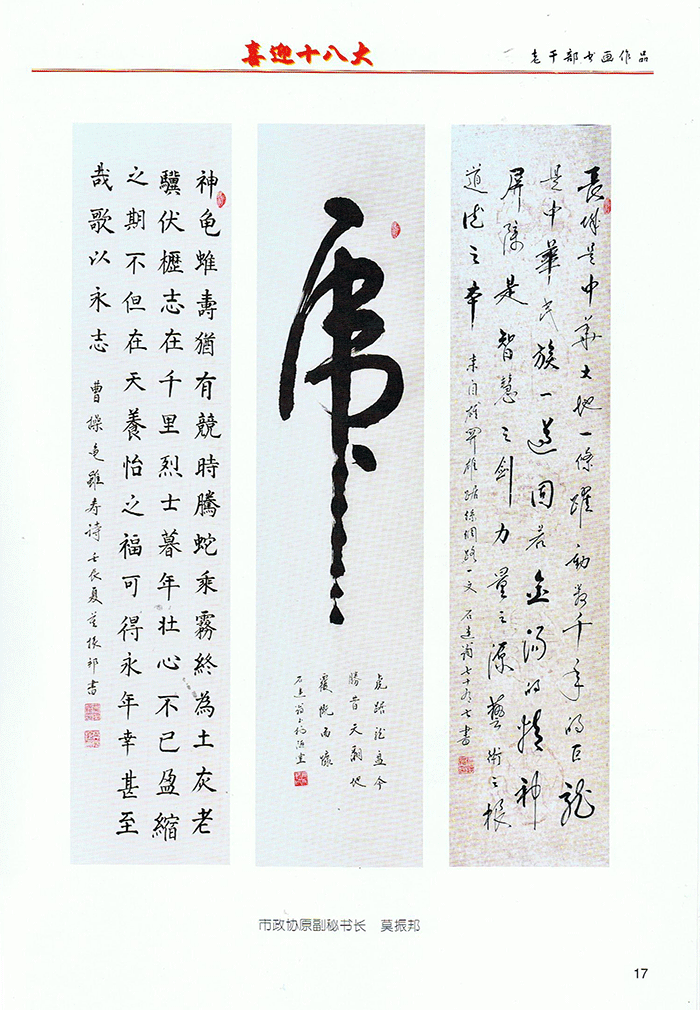 喜迎十八大
老干部书画作品
長城是中华大地一條躍動数千年的巨龍
是中華民族一道固若金湯的精神
屏障是智慧之剑力量之源藝術之根
道德之本
虎
虎踞龙盘今
勝昔天翻地
覆慨而慷
神龟雖壽猶有競時騰蛇乘霧終為土灰老
驥伏櫪志在千里烈士暮年壮心不已盈縮
之期不但在天養怡之福可得永年幸甚至
哉歌以永志 曹操龟雖寿诗 壬辰夏莫振邦書
市政协原副秘书长 莫振邦
17